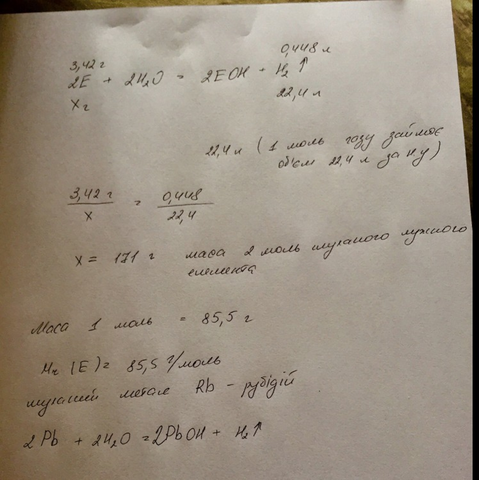 0,448 л
3,42 г
2E + 2H₂O = 2EOH + H₂ ↑
x г
22,4 л
22,4 л ( 1 моль газу займає
обєм 22,4 л за н.у)
3,42 г / x = 0,448 / 22,4
x = 171 г маса 2 моль шуканого лужного
елемента
Маса 1 моль = 85,5 г
Mr (E) = 85,5 г/моль
шуканий метал Rb - рубідій
2Pb + 2H₂O = 2PbOH + H₂↑